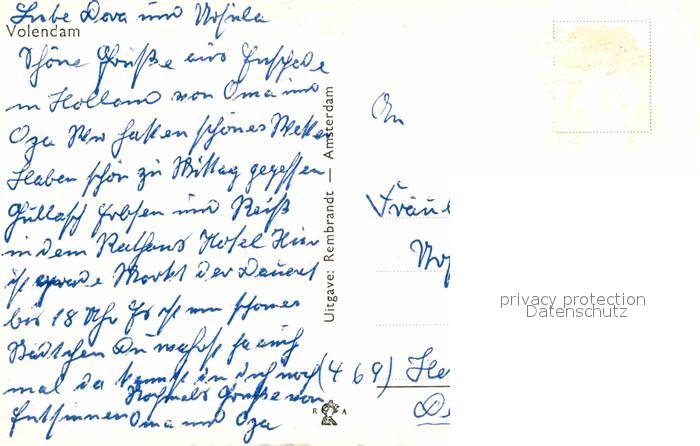 Liebe Dora und Ursula
Volendam
Schöne Grüße aus Enschede
in Holland von Oma und
Opa Wir hatten schönes Wetter
Haben schön zu Mittag gegessen
Gullasch Erbsen und Reiß
in dem Rathaus Hotel Hier
ist gerade Markt der Dauert
bis 18 Uhr Es ist ein schönes
Städtchen Du warst ja auch
mal da kannst du dich noch
Entsinnen
Nochmals Grüße von
Oma und Opa
Uitgave: Rembrandt — Amsterdam
R A
An
Fräul
(469) He
privacy protection
Datenschutz